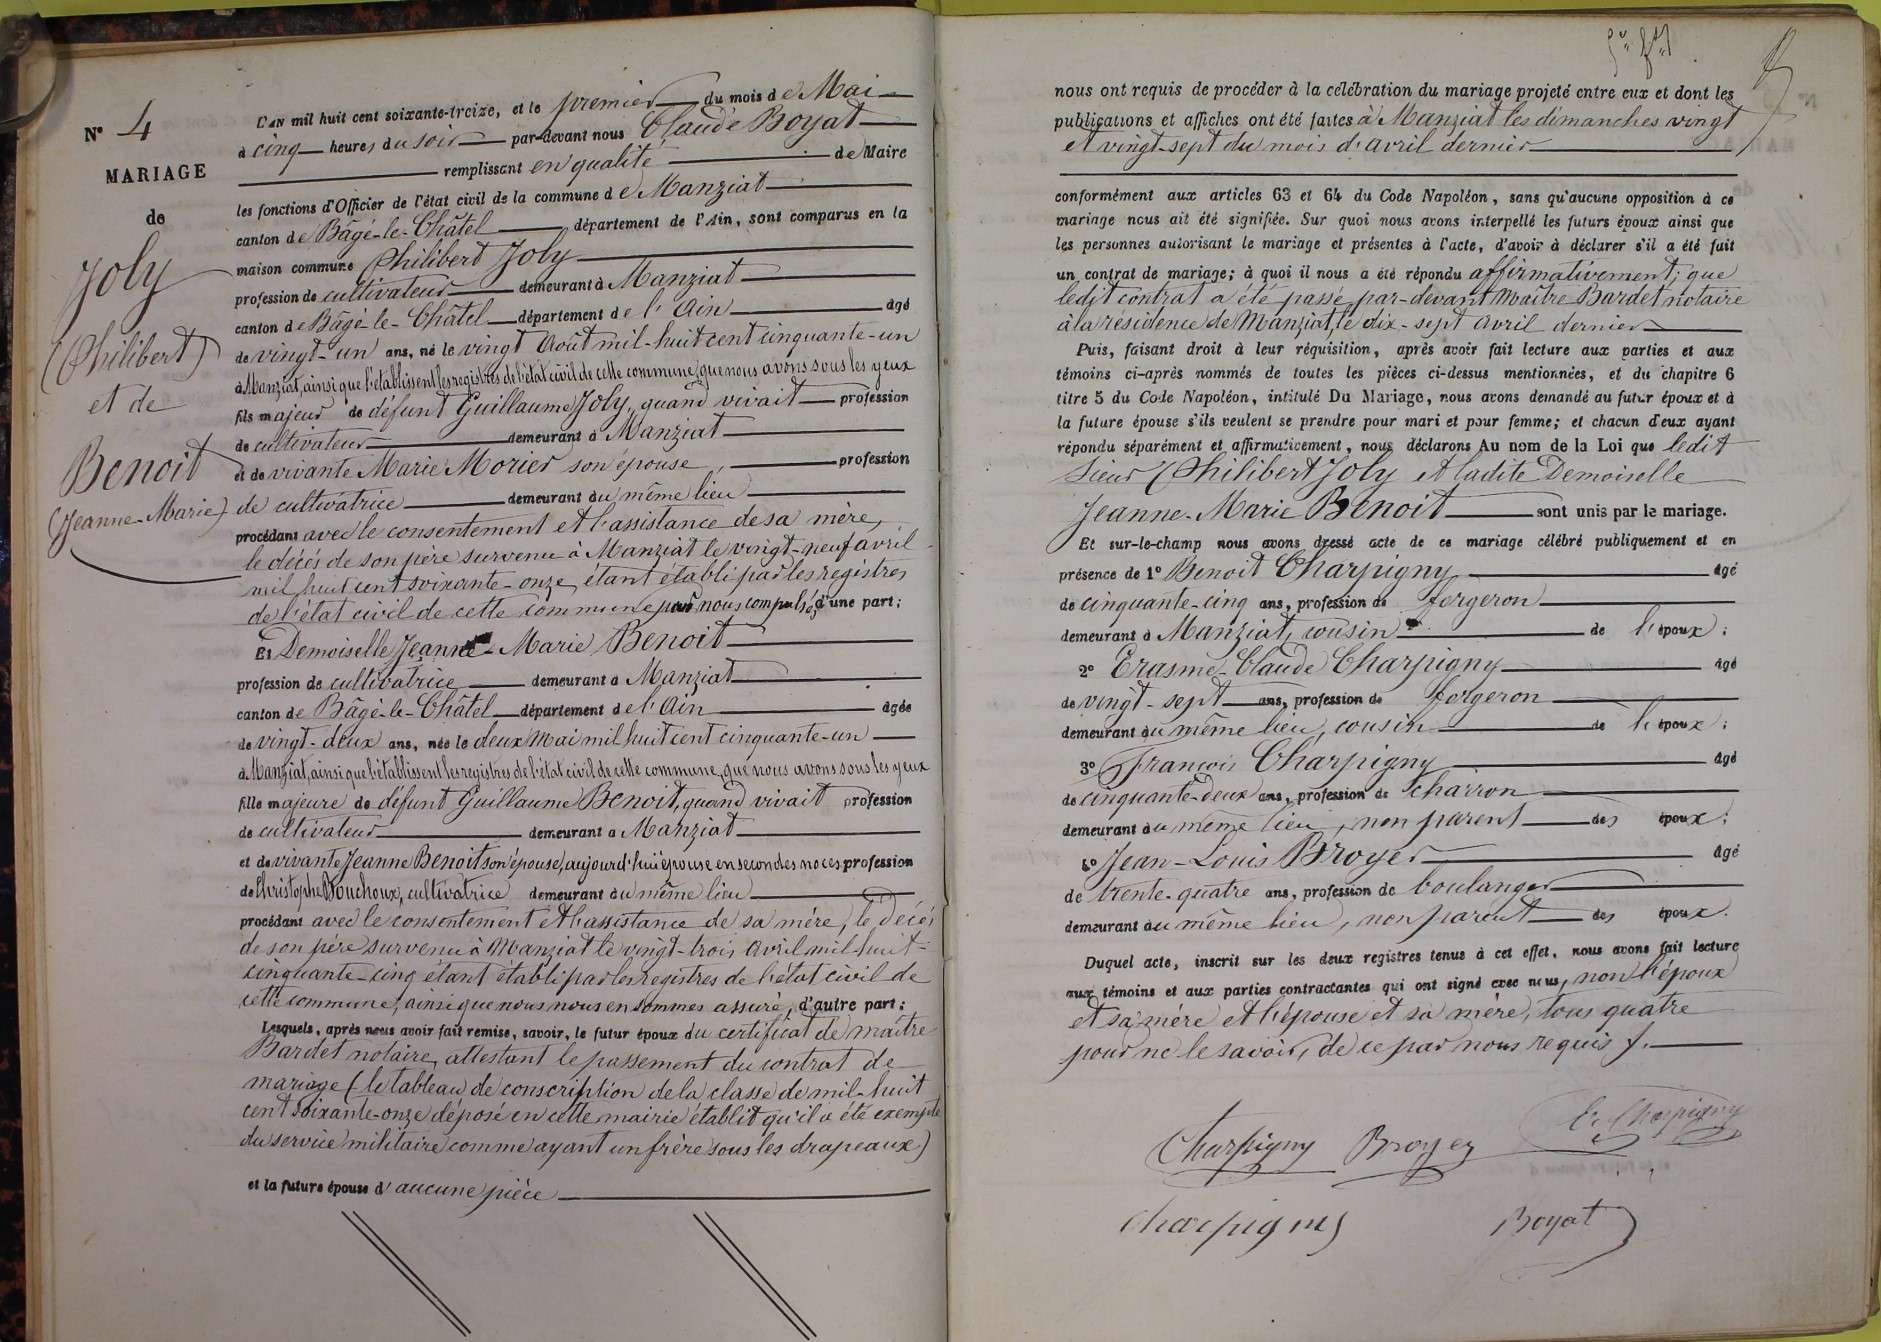 N° 4
MARIAGE
de
Joly
(Philibert)
et de
Benoit
(Jeanne-Marie)
L'AN mil huit cent soixante-treize, et le premier du mois de Mai
à cinq heures du soir par-devant nous Claude Boyat
remplissant en qualité de Maire
les fonctions d'Officier de l'état civil de la commune de Manziat
canton de Bâgé-le-Châtel département de l'Ain, sont comparus en la
maison commune Philibert Joly
profession de cultivateur demeurant à Manziat
canton de Bâgé-le-Châtel département de l'Ain âgé
de vingt-un ans, né le vingt Août mil-huit cent cinquante-un
à Manziat, ainsi que l'établissent les registres de l'état civil de cette commune, que nous avons sous les yeux
fils majeur de défunt Guillaume Joly, quand vivait profession
de cultivateur demeurant à Manziat
et de vivante Marie Morier son épouse, profession
de cultivatrice demeurant au même lieu
procédant avec le consentement et l'assistance de sa mère,
le décès de son père survenu à Manziat le vingt-neuf avril
mil huit cent soixante-onze, étant établi par les registres
de l'état civil de cette commune par nous compulsés, d'une part;
Et Demoiselle Jeanne-Marie Benoit
profession de cultivatrice demeurant à Manziat
canton de Bâgé-le-Châtel département de l'Ain âgée
de vingt-deux ans, née le deux Mai mil huit cent cinquante-un
à Manziat, ainsi que l'établissent les registres de l'état civil de cette commune, que nous avons sous les yeux
fille majeure de défunt Guillaume Benoit, quand vivait profession
de cultivateur demeurant à Manziat
et de vivante Jeanne Benoit son épouse, aujourd'hui épouse en secondes noces profession
de Christophe Bouchoux, cultivatrice demeurant au même lieu
procédant avec le consentement et l'assistance de sa mère, le décès
de son père survenu à Manziat le vingt-trois Avril mil-huit-
cinquante-cinq étant établi par les registres de l'état civil de
cette commune, ainsi que nous nous en sommes assuré, d'autre part;
Lesquels, après nous avoir fait remise, savoir, le futur époux du certificat de maître
Bardet notaire, attestant le passement du contrat de
mariage (le tableau de conscription de la classe de mil-huit
cent soixante-onze déposé en cette mairie établit qu'il a été exempté
du service militaire comme ayant un frère sous les drapeaux)
et la future épouse d'aucune pièce
nous ont requis de procéder à la célébration du mariage projeté entre eux et dont les
publications et affiches ont été faites à Manziat les dimanches vingt
et vingt-sept du mois d'avril dernier
conformément aux articles 63 et 64 du Code Napoléon, sans qu'aucune opposition à ce
mariage nous ait été signifiée. Sur quoi nous avons interpellé les futurs époux ainsi que
les personnes autorisant le mariage et présentes à l'acte, d'avoir à déclarer s'il a été fait
un contrat de mariage; à quoi il nous a été répondu affirmativement; que
ledit contrat a été passé par-devant Maître Bardet notaire
à la résidence de Manziat, le dix-sept avril dernier
Puis, faisant droit à leur réquisition, après avoir fait lecture aux parties et aux
témoins ci-après nommés de toutes les pièces ci-dessus mentionnées, et du chapitre 6
titre 5 du Code Napoléon, intitulé Du Mariage, nous avons demandé au futur époux et à
la future épouse s'ils veulent se prendre pour mari et pour femme; et chacun d'eux ayant
répondu séparément et affirmativement, nous déclarons Au nom de la Loi que ledit
Sieur Philibert Joly et ladite Demoiselle
Jeanne-Marie Benoit sont unis par le mariage.
Et sur-le-champ nous avons dressé acte de ce mariage célébré publiquement et en
présence de 1° Benoit Charpigny âgé
de cinquante-cinq ans, profession de forgeron
demeurant à Manziat, cousin de l'époux;
2° Erasme-Claude Charpigny âgé
de vingt-sept ans, profession de forgeron
demeurant au même lieu, cousin de l'époux;
3° François Charpigny âgé
de cinquante-deux ans, profession de charron
demeurant au même lieu, non parent des époux;
4° Jean-Louis Broyer âgé
de trente-quatre ans, profession de boulanger
demeurant au même lieu, non parent des époux.
Duquel acte, inscrit sur les deux registres tenus à cet effet, nous avons fait lecture
aux témoins et aux parties contractantes qui ont signé avec nous, non l'époux
et sa mère et l'épouse et sa mère, tous quatre
pour ne le savoir, de ce par nous requis /.
Charpigny Broyer E. Charpigny
Charpigny Boyat